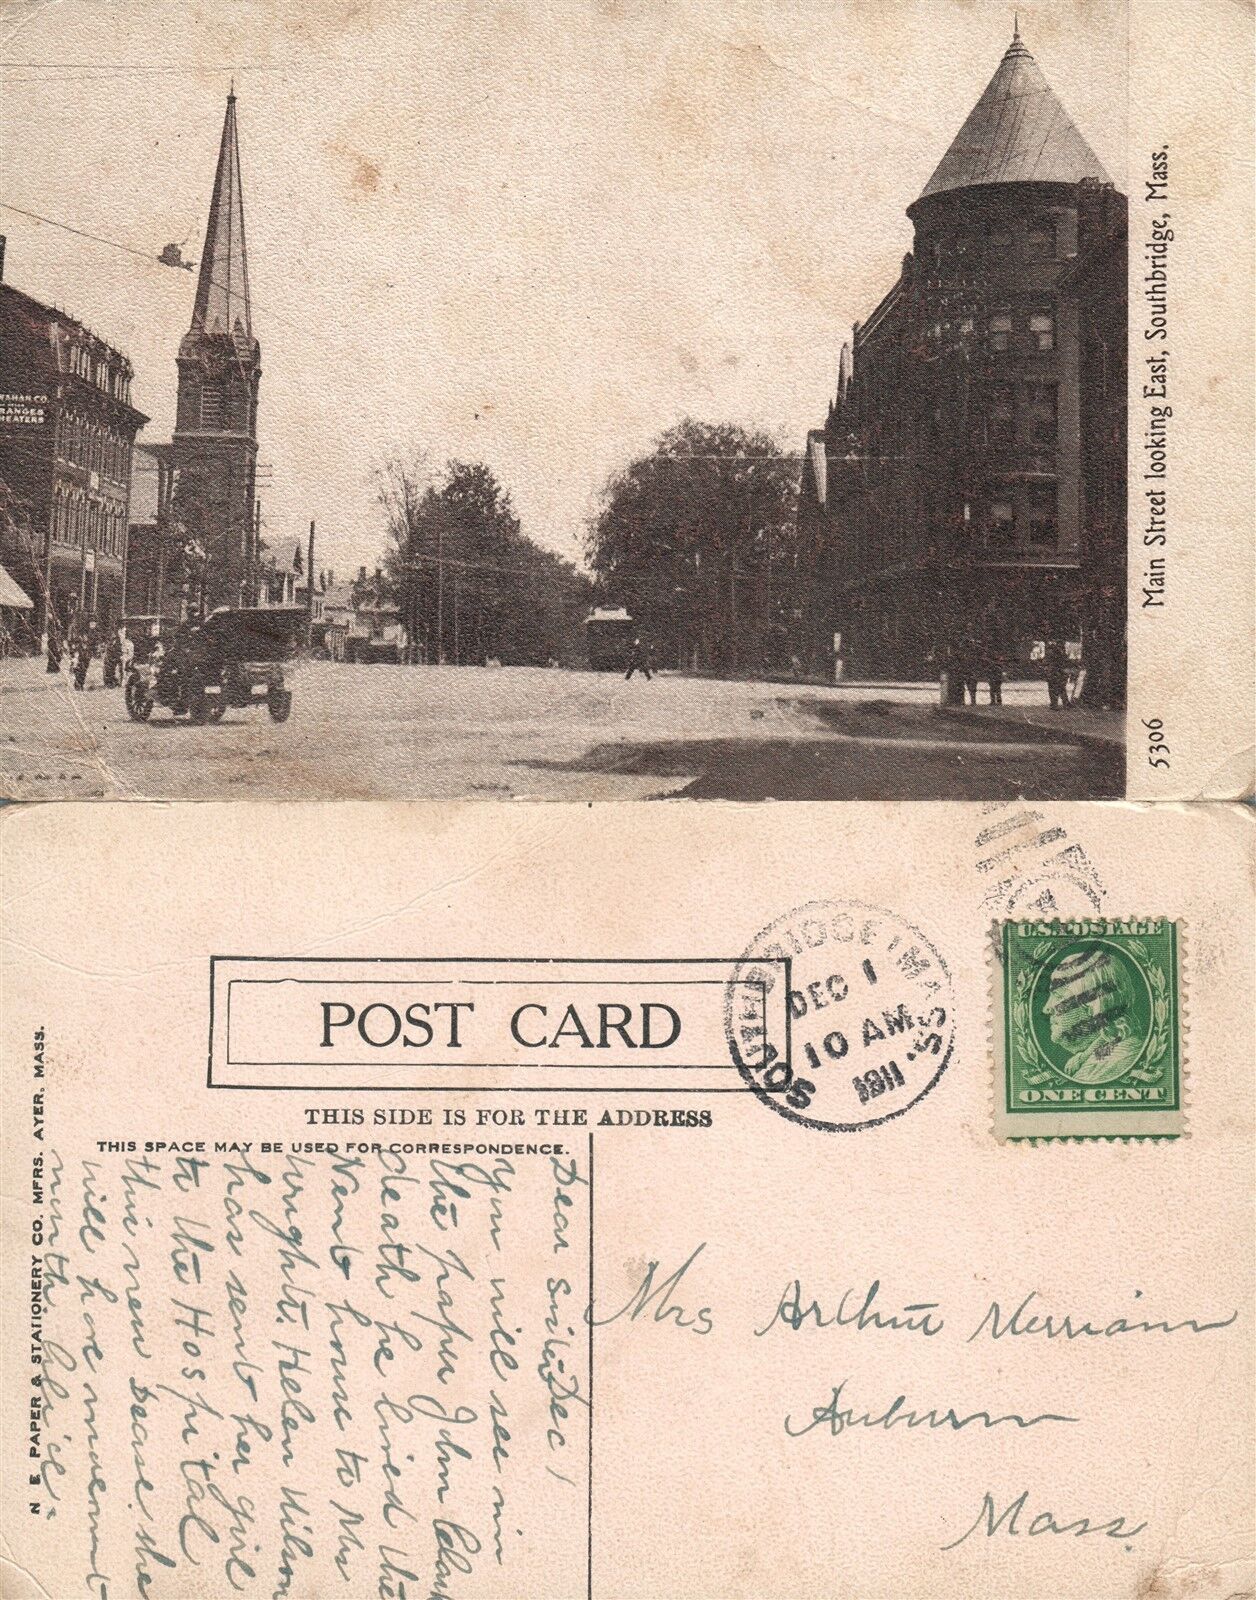 AHAN CO.
RANGES
HEATERS
Main Street looking East, Southbridge, Mass.
5306
POST CARD
THIS SIDE IS FOR THE ADDRESS
THIS SPACE MAY BE USED FOR CORRESPONDENCE.
N E PAPER & STATIONERY CO. MFRS. AYER. MASS.
SOUTHBRIDGE, MASS.
DEC 1
10 AM
1911
U.S. POSTAGE
ONE CENT
Dear sister Dec 1
you will see in
the paper John Clark
death he lived the
Next house to Mrs
Wright. Helen Wilson
has sent her girl
to the Hospital
this new Dease. she
will have
with Alice.
Mrs Arthur Merriam
Auburn
Mass.